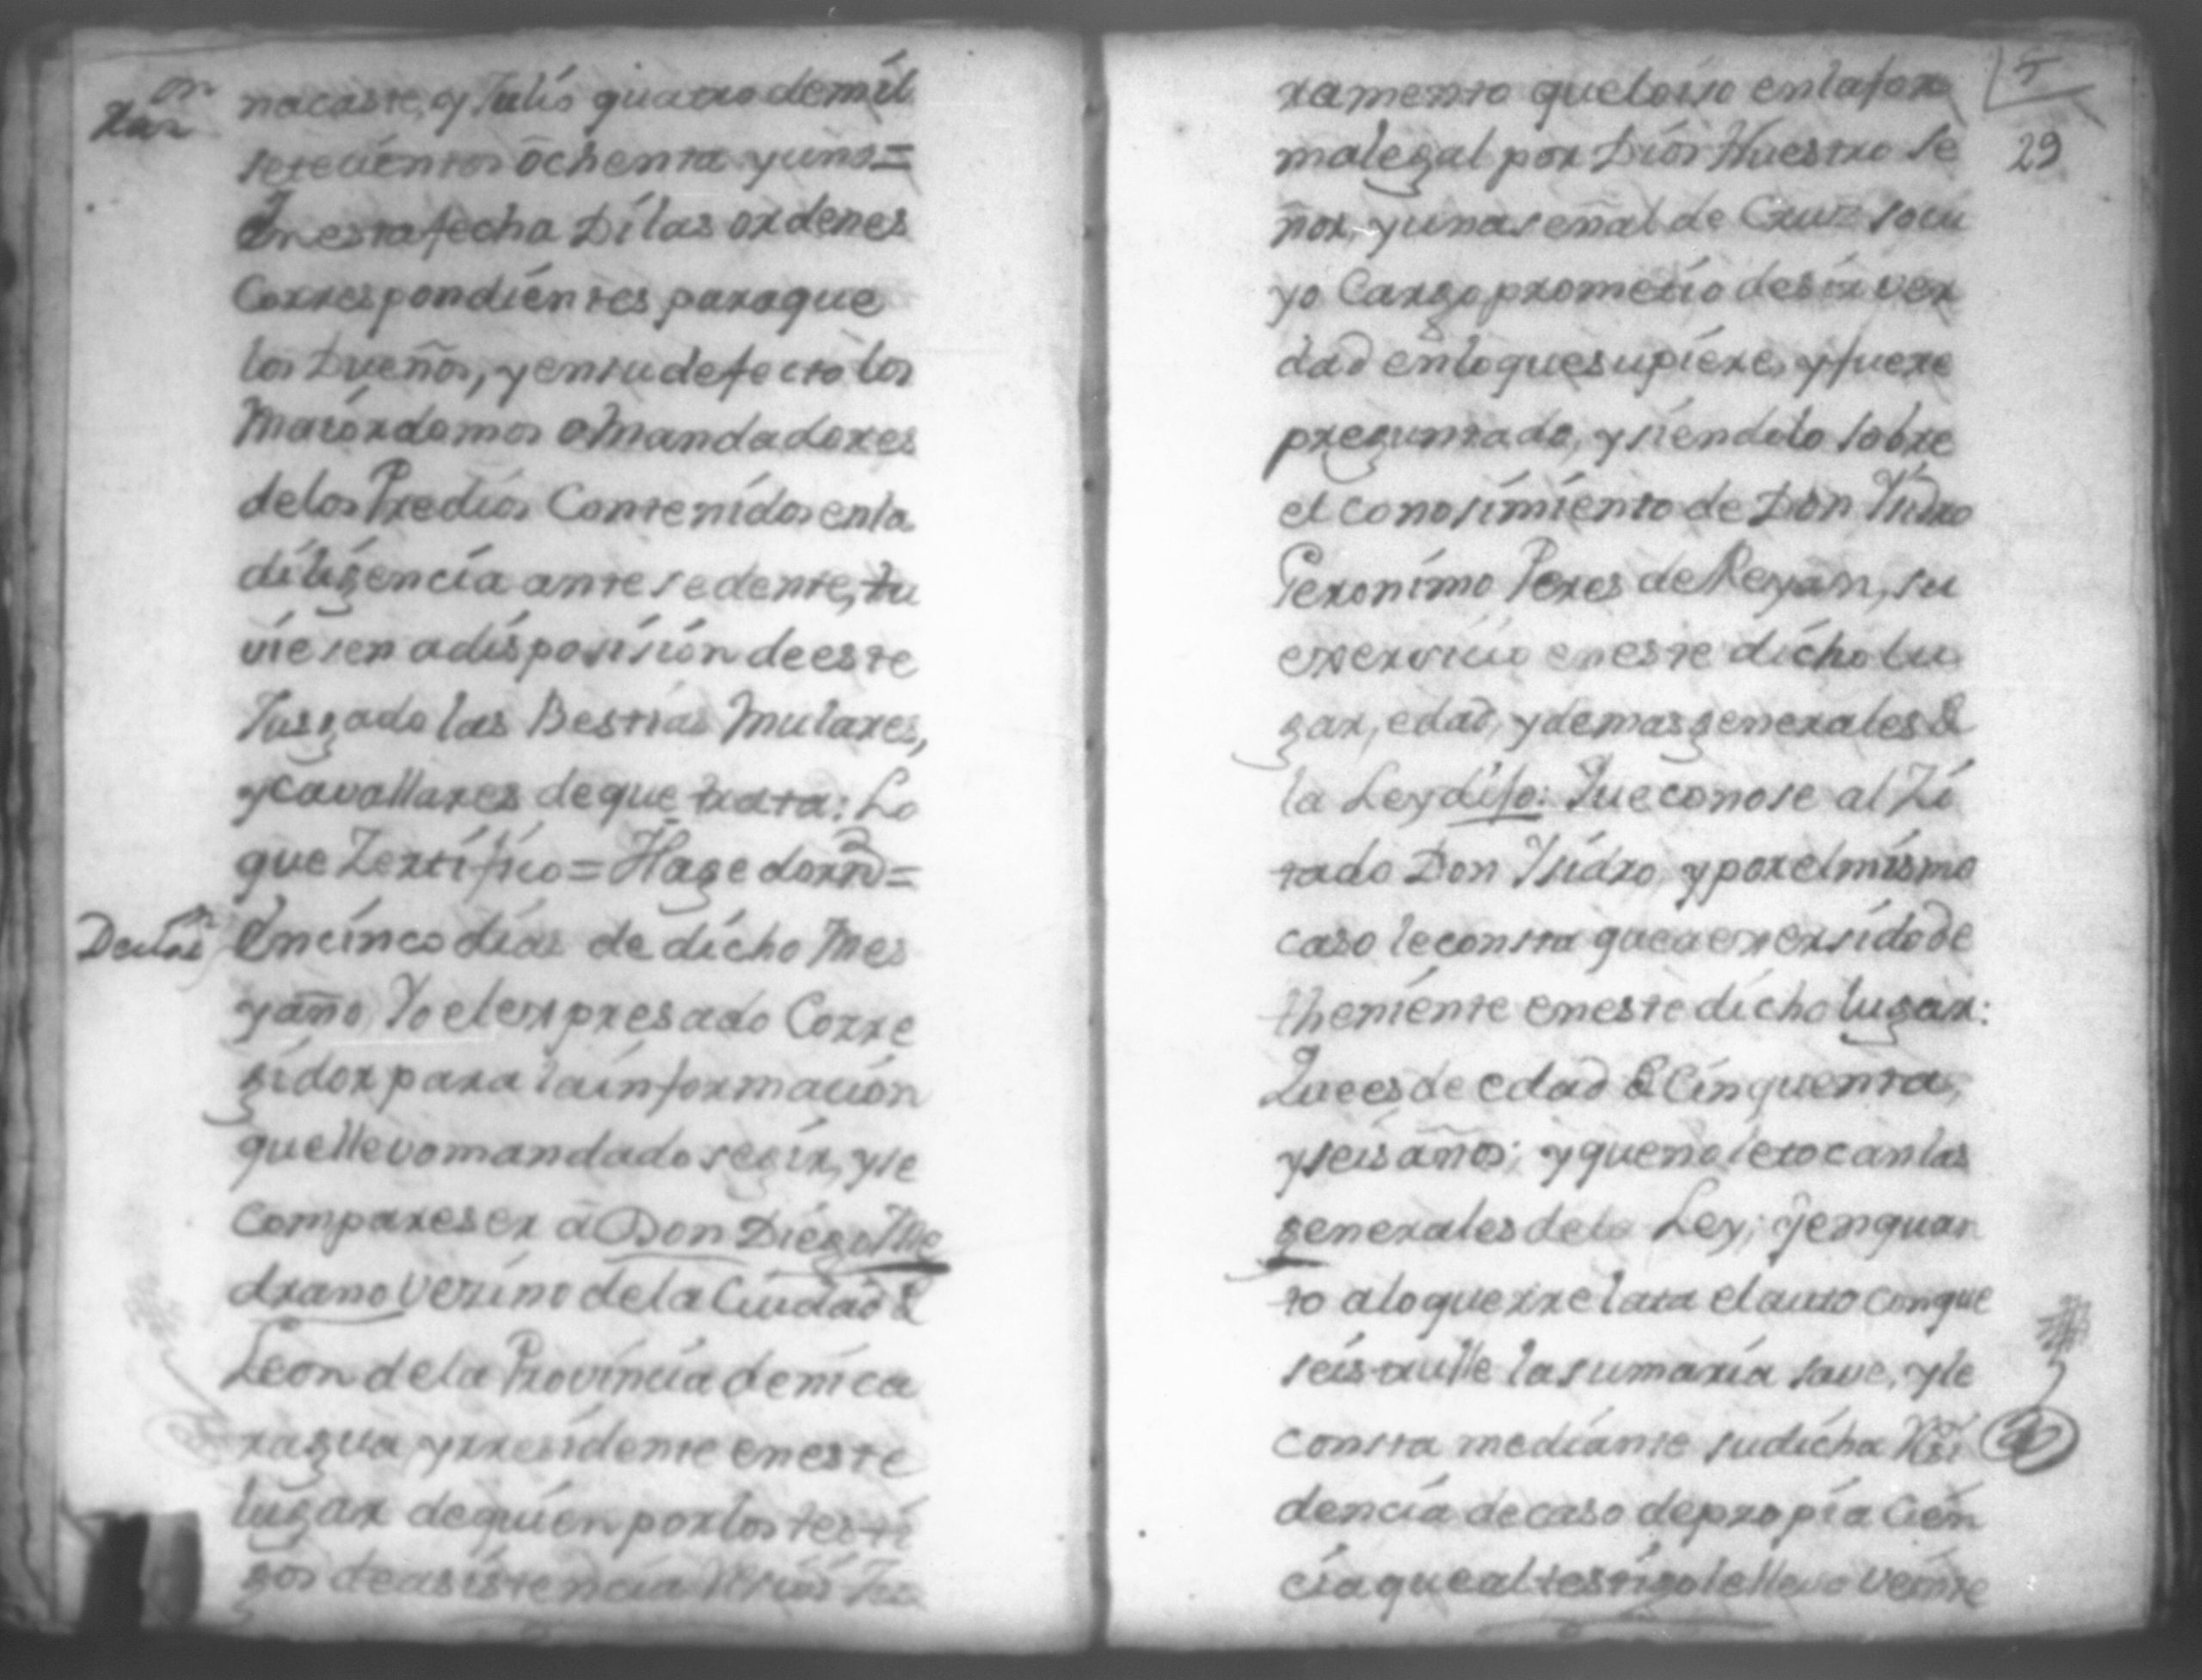 on
Raz
nacaste, y Julio quatro de mil
setecientos ochenta y uno =
En esta fecha Di las ordenes
Correspondientes para que
los Dueños, y en su defecto los
Maiordomos o Mandadores
de los Predios Contenidos en la
diligencia antesedente, tu
viesen a disposision de este
Jusgado las Bestias Mulares,
y cavallares de que trata: Lo
que Zertifico =
En cinco dias de dicho Mes
y año, Yo el expresado Corre
gidor para la informacion
que llevo mandado seguir, yse
Compareser â Don Diego Me
drano vezino de la Ciudad de
Leon de la Provincia de nica
ragua y rresidente en este
lugar de quien por los testi
gos de asistencia Resiui Ju
5
29
ramento que lo iso en la for
ma legal por Dios Nuestro Se
ñor, y una señal de Cruz so cu
yo Cargo prometio desir ver
dad en lo que supiere, y fuere
preguntado, y siendolo sobre
el conosimiento de Don Ysidro
Geronimo Peres de Reyan, su
exercicio en este dicho lu
gar, edad, y demas generales de
la Ley dijo: Que conose al Zi
tado Don Ysidro, y por el mismo
caso le consta que a exersido de
theniente en este dicho lugar:
Que es de edad de Cinquenta,
y seis años; y que no le tocan las
generales de la Ley; y en quan
to a lo que rrelata el auto con que
seis rulle la sumaria save, y le
consta mediante su dicha Resi
dencia de caso de propia Cien
cia que al testigo le lleva veinte